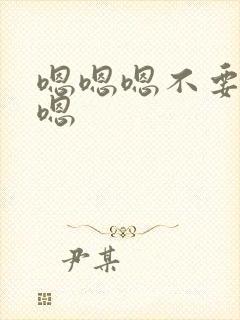 嗯嗯嗯不要
嗯
尹某